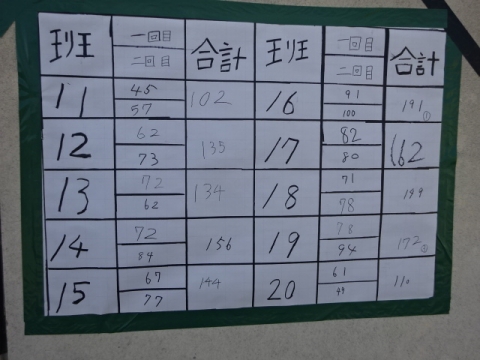 班 一回目 合計 班 一回目 合計
二回目 二回目
11 45 102 16 91 191 ①
57 100
12 62 135 17 82 162
73 80
13 72 134 18 71 149
62 78
14 72 156 19 78 172 ②
84 94
15 67 144 20 61 110
77 49